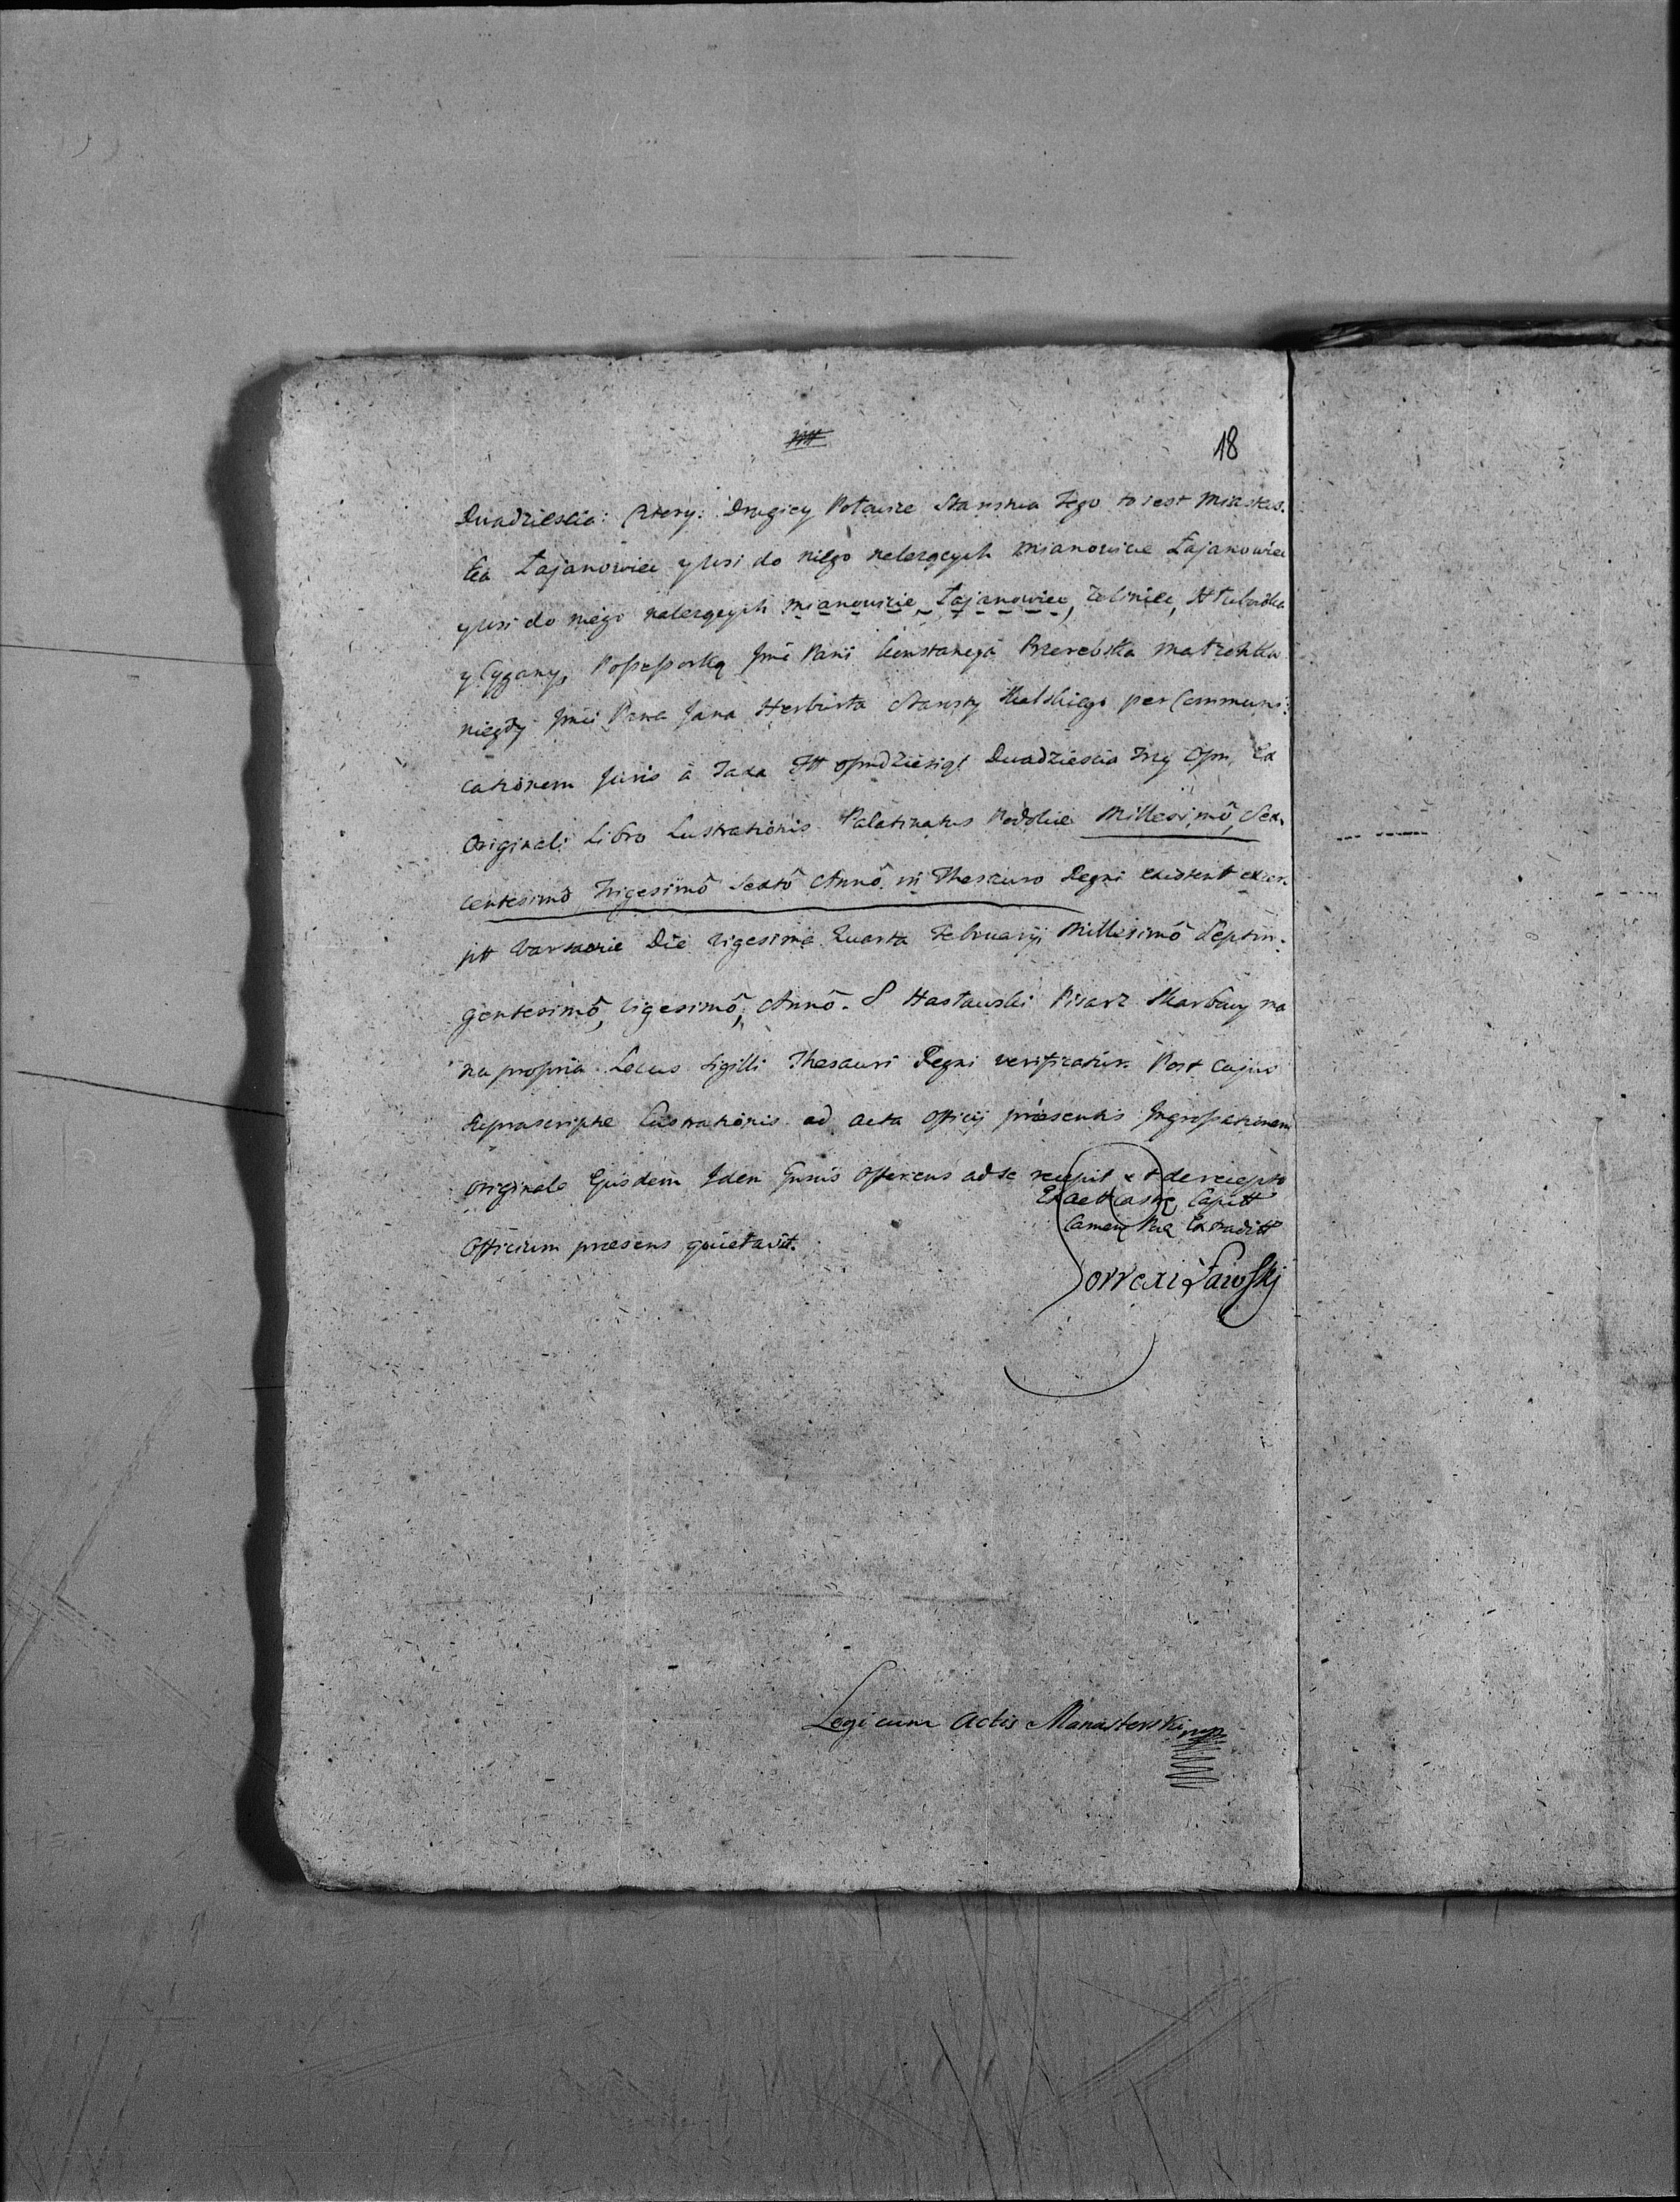 18
Dwadziescia: Cztery: Drugiey Połowice Starostwa Tego to iest Miastecz.
ka Łajanowiec y wsi do niego nalezących mianowicie Łajanowiec
y wsi do niego nalezących mianowicie, Łajanowiec, Zelinice, Hłuboczka
y Cygany, Possessorką Jmć Pani Konstancya Przerębska małzonka
niegdy Jmci Pana Jana Herburta Starosty Skalskiego per Communi:
cationem Juris à Taxa Ftt osmdziesiąt Dwadziescia Trzy Osm, Ex
Originali Libro Lustrationis Palatinatus Podolie Millesimô, Sex.
centesimô Trigesimô Sextô Annô in Thesauro Regni existent excer.
ptt Varsavie Die Vigesima Quarta Februarij Millesimô Septin:
gentesimô, Vigesimô, Annô. S Hasławski Pisarz Skarbowy ma
nu propria Locus Sigilli Thesauri Regni verificatur. Post cujus
suprascripte Lustrationis ad acta Officij præsentis Ingrossationem
originale Ejusdem Idem Gnsus Offerens ad se recepit et de recepto
Officium præsens quietavit.
Ex actt Castr, Capitt
Camen Pod Extraditt
Correxi Ławski
Legi cum Actis Manasterski mp